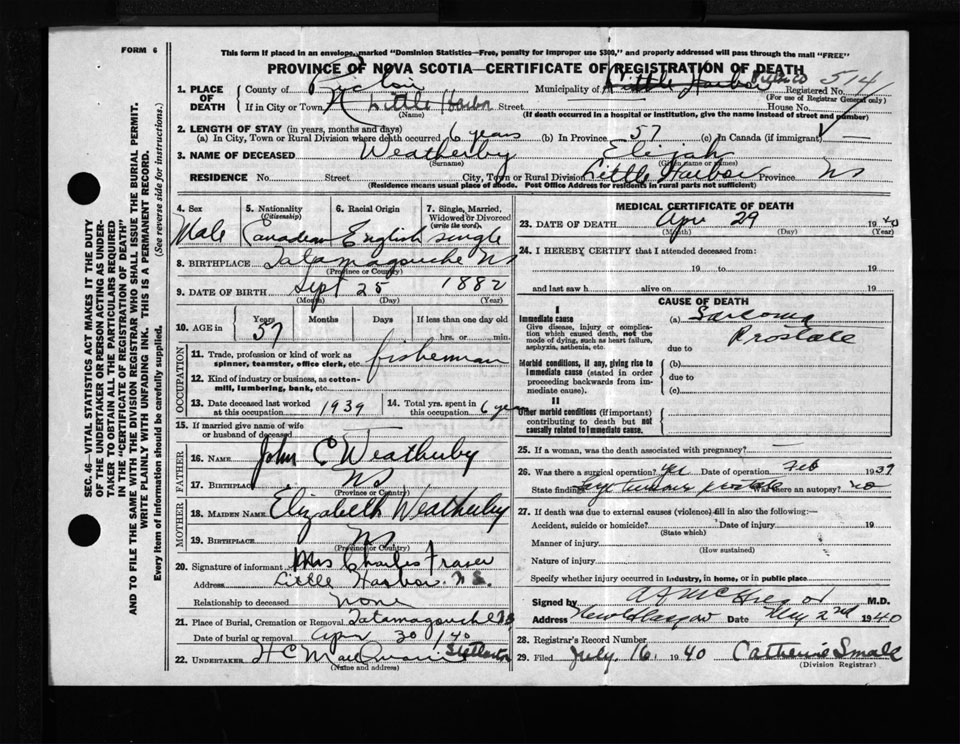 FORM 6
This form if placed in an envelope, marked "Dominion Statistics—Free, penalty for improper use $300," and properly addressed will pass through the mail "FREE"
PROVINCE OF NOVA SCOTIA—CERTIFICATE OF REGISTRATION OF DEATH
1. PLACE OF DEATH County of Pictou Municipality of Little Harbor Pictou Registered No. 514
(For use of Registrar General only)
If in City or Town Little Harbor Street House No.
(Name) (If death occurred in a hospital or institution, give the name instead of street and number)
2. LENGTH OF STAY (in years, months and days)
(a) In City, Town or Rural Division where death occurred 6 years (b) In Province 57 (c) In Canada (if immigrant)
3. NAME OF DECEASED Weatherby Elijah
(Surname) (Given name or names)
RESIDENCE No. Street City, Town or Rural Division Little Harbor Province NS
(Residence means usual place of abode. Post Office Address for residents in rural parts not sufficient)
4. Sex Male
5. Nationality (Citizenship) Canadian
6. Racial Origin English
7. Single, Married, Widowed or Divorced (write the word). single
8. BIRTHPLACE Tatamagouche NS
(Province or County)
9. DATE OF BIRTH Sept 25 1882
(Month) (Day) (Year)
10. AGE in Years 57 Months Days If less than one day old
hrs. or min.
OCCUPATION
11. Trade, profession or kind of work as spinner, teamster, office clerk, etc. fisherman
12. Kind of industry or business, as cotton-mill, lumbering, bank, etc.
13. Date deceased last worked at this occupation 1939
14. Total yrs. spent in this occupation 6 years
15. If married give name of wife or husband of deceased
FATHER
16. NAME John C Weatherby
17. BIRTHPLACE NS
(Province or Country)
MOTHER
18. MAIDEN NAME Elizabeth Weatherby
19. BIRTHPLACE NS
(Province or Country)
20. Signature of informant Mrs Charles Fraser
Address Little Harbor. N.S.
Relationship to deceased none
21. Place of Burial, Cremation or Removal Tatamagouche
Date of burial or removal Apr 30/40
22. UNDERTAKER H C Stellarton
(Name and address)
MEDICAL CERTIFICATE OF DEATH
23. DATE OF DEATH Apr 29 1940
(Month) (Day) (Year)
24. I HEREBY CERTIFY that I attended deceased from:
19 to 19
and last saw h alive on 19
CAUSE OF DEATH
I
Immediate cause
Give disease, injury or complication which caused death, not the mode of dying, such as heart failure, asphyxia, asthenia, etc.
(a) Sarcoma
Prostate
due to
Morbid conditions, if any, giving rise to immediate cause (stated in order proceeding backwards from immediate cause).
(b)
due to
(c)
II
Other morbid conditions (if important) contributing to death but not causally related to immediate cause.
25. If a woman, was the death associated with pregnancy?
26. Was there a surgical operation? Yes Date of operation Feb 1939
State findings prostate Was there an autopsy? no
27. If death was due to external causes (violence) fill in also the following:—
Accident, suicide or homicide? Date of injury 19
(State which)
Manner of injury
(How sustained)
Nature of injury
Specify whether injury occurred in industry, in home, or in public place
Signed by M.D.
Address New Glasgow Date May 2nd 1940
28. Registrar's Record Number
29. Filed July 16 1940 Catherine Small
(Division Registrar)
SEC. 46—VITAL STATISTICS ACT MAKES IT THE DUTY
OF THE UNDERTAKER OR PERSON ACTING AS UNDER-
TAKER TO OBTAIN ALL THE PARTICULARS REQUIRED
IN THE "CERTIFICATE OF REGISTRATION OF DEATH"
AND TO FILE THE SAME WITH THE DIVISION REGISTRAR WHO SHALL ISSUE THE BURIAL PERMIT.
WRITE PLAINLY WITH UNFADING INK. THIS IS A PERMANENT RECORD.
Every item of information should be carefully supplied. (See reverse side for instructions.)